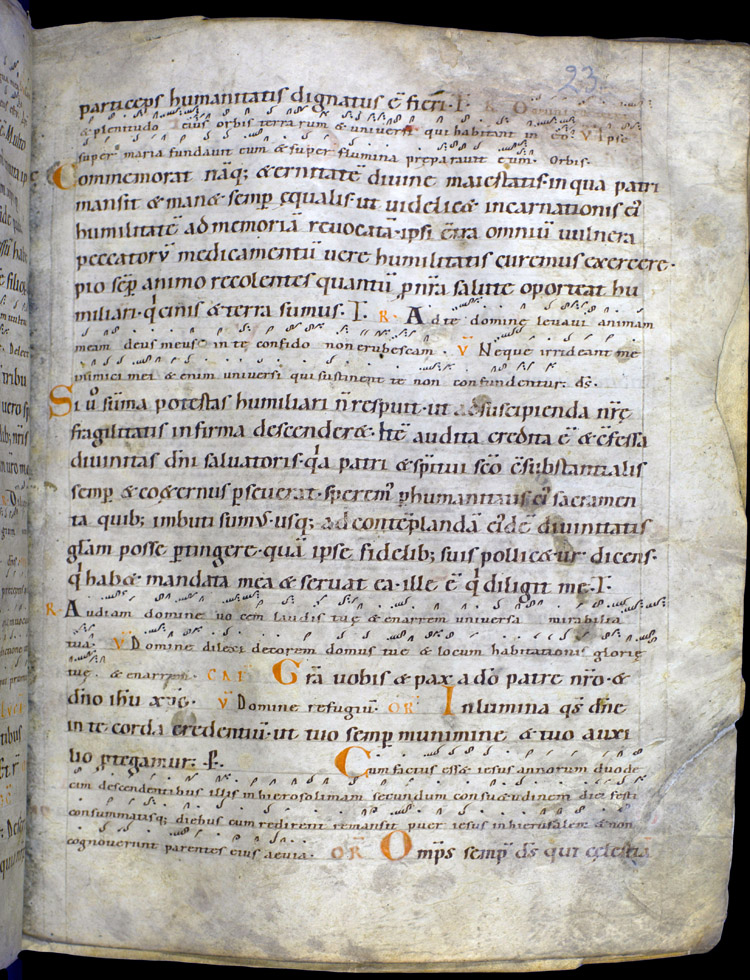 23
particeps humanitatis dignatus ē fieri. T. R. O
& plenitudo eius orbis terrarum & universi qui habitant in eo. V Ipse
super maria fundavit eum & super flumina preparavit eum. Orbis.
Commemorat naq; &ernitatē divine maiestatis in qua patri
mansit & man& semp ęqualis ut videlic& incarnationis ei
humilitatē ad memoriā revocatā ipsi cterra omniū vulnera
peccatorū medicamentū vere humilitatis curemus exercere.
pio sēp animo recolentes quantū p nr̄a salute oporteat hu
miliari. q cinis & terra sumus. T. R. Ad te domine levavi animam
meam deus meus in te confido non erubescam. V Neque irrideant me
inimici mei & enim universi qui sustinent te non confundentur. ds.
Si vo sūma potestas humiliari n respuit ut ad suscipienda nrę
fragilitatis infirma descender&. hec audita credita ē & cfessa
divinitas dni salvatoris. qa patri & spiritui sco csubstantialis
semp & co&ernus pseverat. sperem p humanitatis ei sacramen
ta quib; imbuti sumus. usq; ad contēplandā eidē divinitatis
glam posse ptingere. quā ipse fidelib; suis pollic&ur dicens.
q hab& mandata mea & servat ea. ille ē q diligit me. T.
R. Audiam domine vocem laudis tuę & enarrem universa mirabilia
tua. V Domine dilexi decorem domus tuę & locum habitationis glorię
tuę. & enarrem. CAP Gra vobis & pax a do patre nro. &
dno ihu xpo. V Domine refugiū. OR Inlumina qs dne
in te corda credentiū. ut tuo semp munimine & tuo auxi
lio ptegamur. P. Cum factus ess& iesus annorum duode
cim descendentibus illis in hierosolimam secundum consu&udinem diei festi
consummatisq; diebus cum redirent remansit puer iesus in hierusalem & non
cognoverunt parentes eius aevia. OR Omps semp ds qui cęlestia